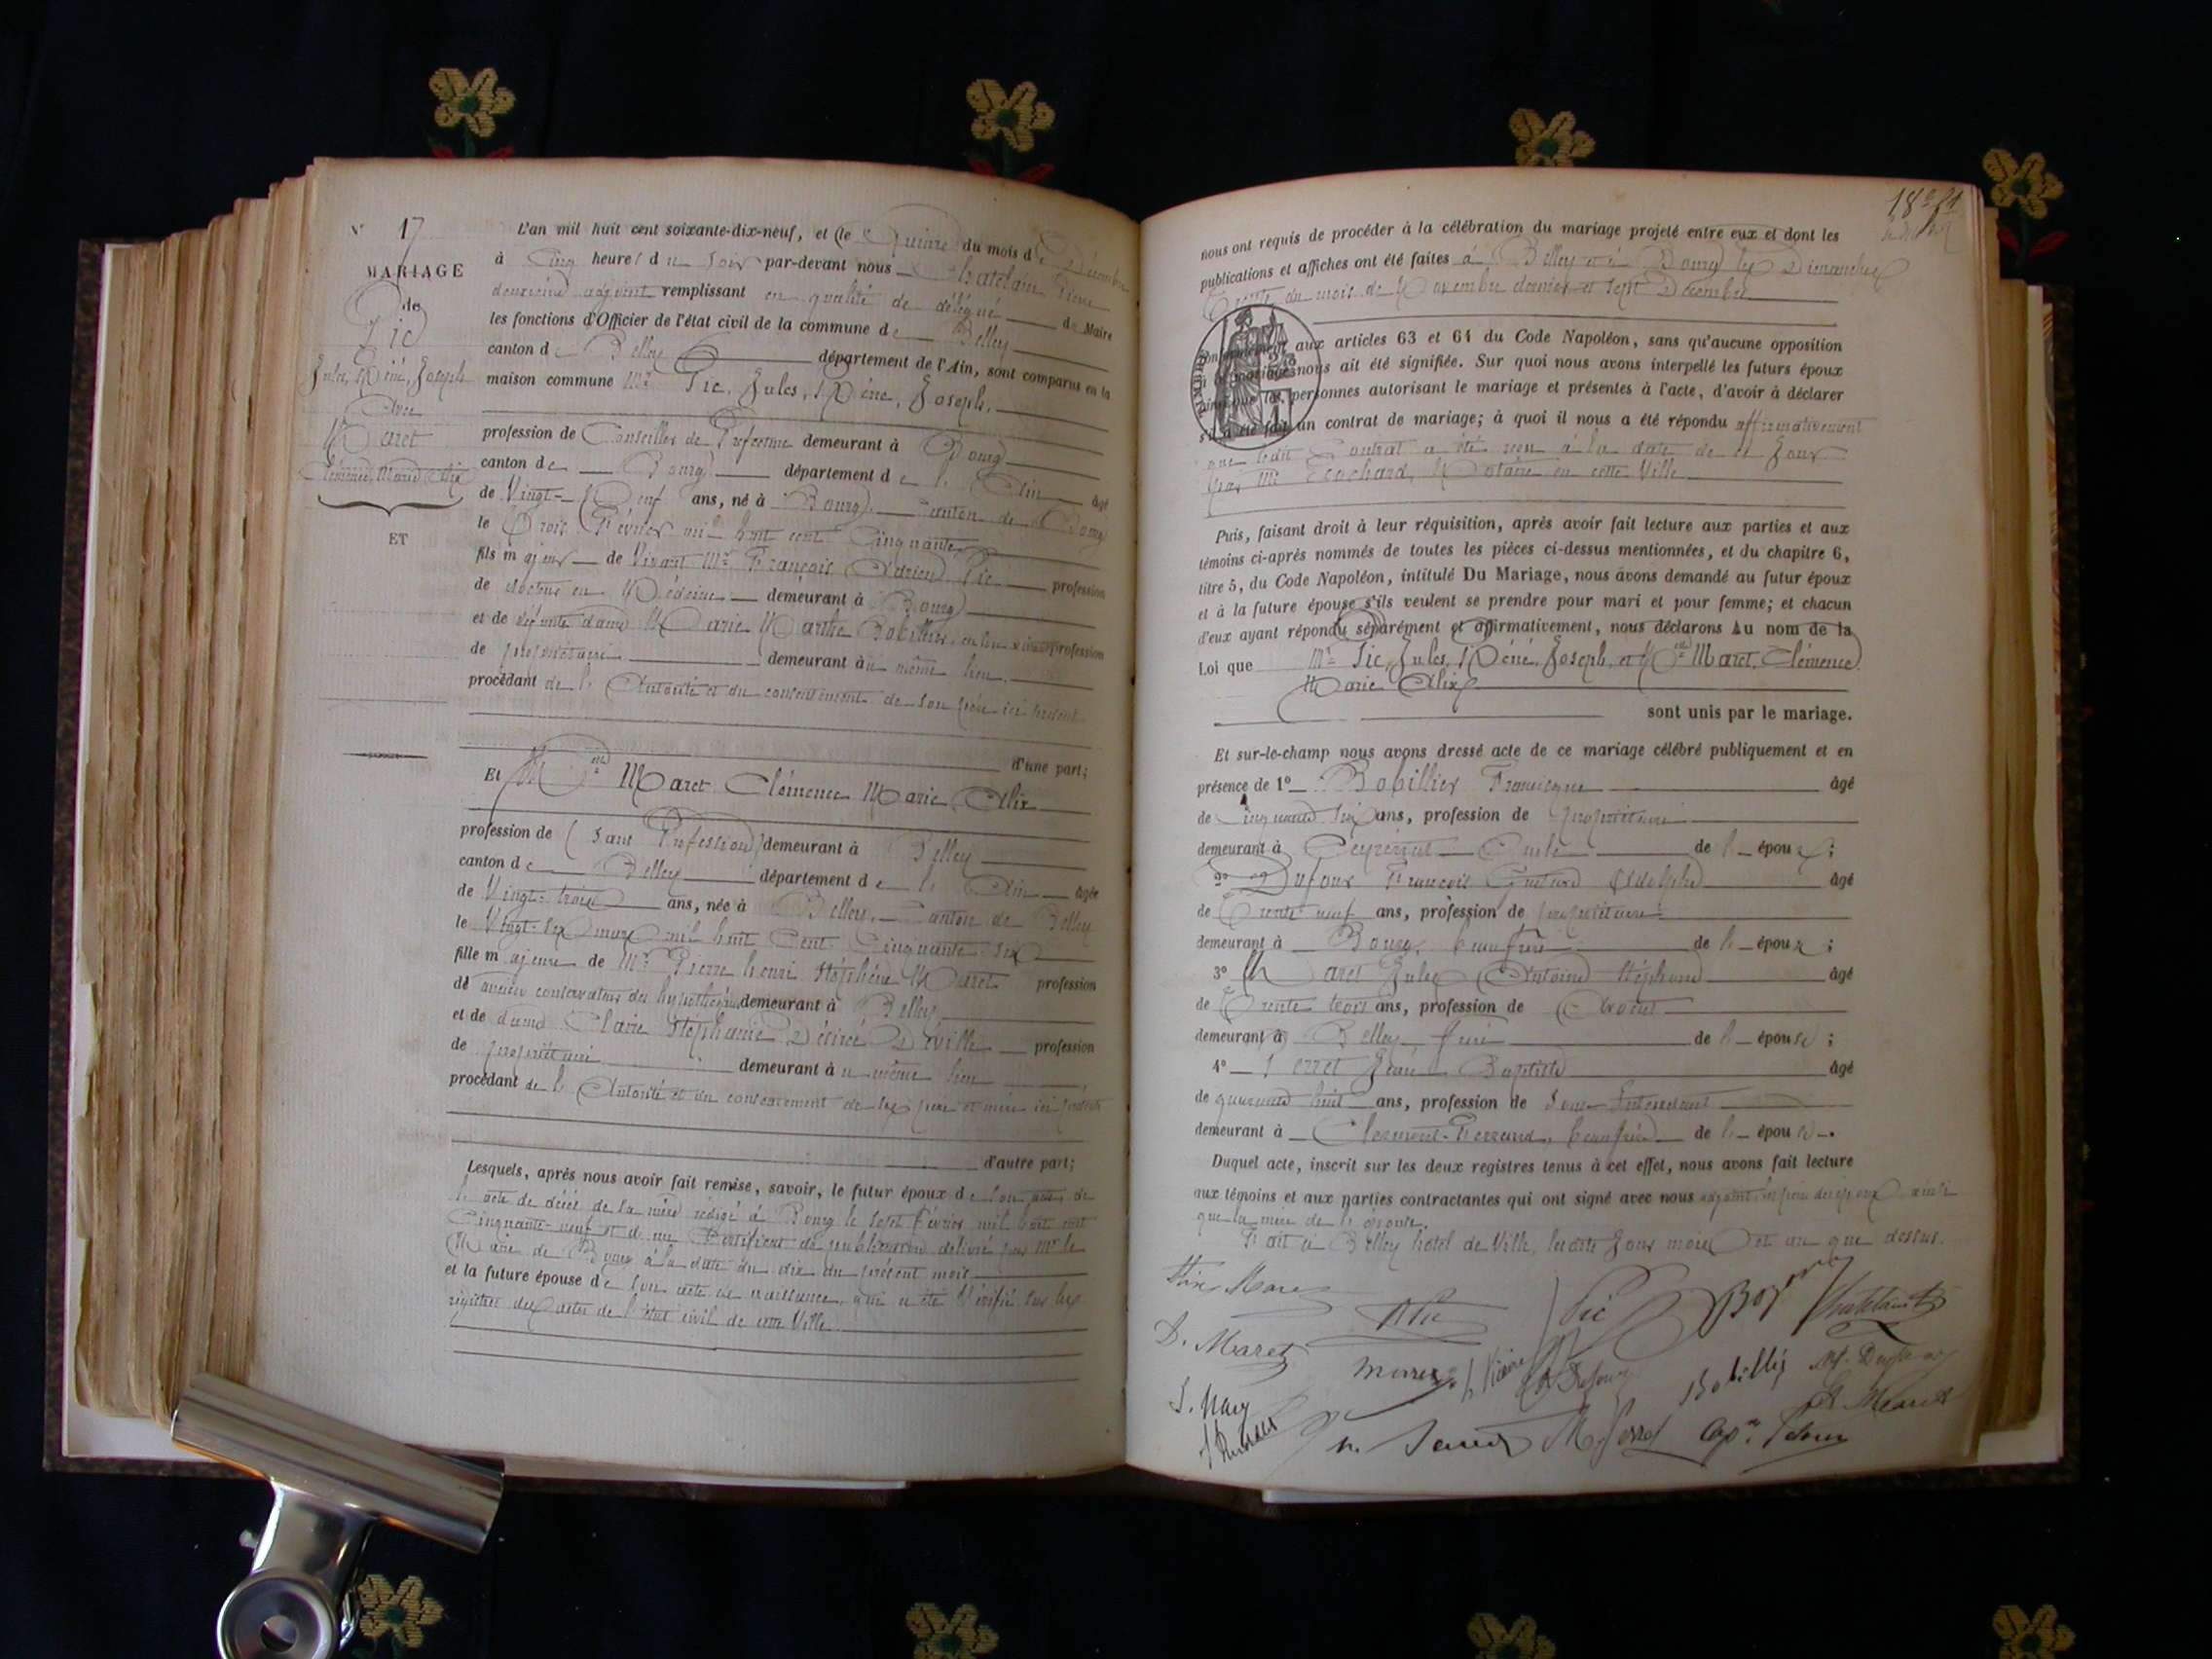 N° 17
MARIAGE
de
Pic
Jules, Réné, Joseph
Avec
Maret
Clémence, Marie, Alix
ET
L'an mil huit cent soixante-dix-neuf, et le Quinze du mois de Décembre
à Cinq heures du soir par-devant nous Chatelain
deuxième adjoint remplissant en qualité de délégué du Maire
les fonctions d'Officier de l'état civil de la commune de Belley
canton de Belley département de l'Ain, sont comparus en la
maison commune Mr Pic, Jules, Réné, Joseph,
profession de Conseiller de Préfecture demeurant à Bourg
canton de Bourg département de l'Ain âgé
de Vingt-Neuf ans, né à Bourg, canton de Bourg
le Trois Février mil huit cent Cinquante
fils majeur de Vivant Mr François Adrien Pic profession
de docteur en Médecine demeurant à Bourg
et de défunte dame Marie Marthe Bobillier, en son vivant profession
de propriétaire demeurant au même lieu,
procédant de l'Autorité et du consentement de son père ici présent
d'une part;
Et Melle Maret Clémence Marie Alix
profession de (Sans Profession) demeurant à Belley
canton de Belley département de l'Ain âgée
de Vingt-trois ans, née à Belley, Canton de Belley
le Vingt-six mars mil huit Cent Cinquante six
fille majeure de Mr Pierre henri Stéphène Maret profession
de ancien conservateur des hypothèques demeurant à Belley
et de dame Claire Stéphanie Désirée Déville profession
de propriétaire demeurant au même lieu
procédant de l'Autorité et du consentement de ses père et mère ici présents
d'autre part;
Lesquels, après nous avoir fait remise, savoir, le futur époux de son acte, de
l'acte de décès de la mère rédigé à Bourg le sept Février mil huit cent
Cinquante-neuf et d'un Certificat de publication délivré par Mr le
Maire de Bourg à la date du dix du présent mois
et la future épouse de son acte de naissance, qui a été Vérifié sur les
registres des actes de l'état civil de cette Ville
nous ont requis de procéder à la célébration du mariage projeté entre eux et dont les
publications et affiches ont été faites à Belley et à Bourg les Dimanches
Trente du mois de Novembre dernier et sept Décembre
TIMBRE
aux articles 63 et 64 du Code Napoléon, sans qu'aucune opposition
à ce mariage nous ait été signifiée. Sur quoi nous avons interpellé les futurs époux
ainsi que les personnes autorisant le mariage et présentes à l'acte, d'avoir à déclarer
s'il a été fait un contrat de mariage; à quoi il nous a été répondu affirmativement
que ledit Contrat a été reçu à la date de ce Jour
par Me Notaire en cette Ville
Puis, faisant droit à leur réquisition, après avoir fait lecture aux parties et aux
témoins ci-après nommés de toutes les pièces ci-dessus mentionnées, et du chapitre 6,
titre 5, du Code Napoléon, intitulé Du Mariage, nous avons demandé au futur époux
et à la future épouse s'ils veulent se prendre pour mari et pour femme; et chacun
d'eux ayant répondu séparément et affirmativement, nous déclarons Au nom de la
Loi que Mr Pic, Jules, Réné, Joseph, et Melle Maret, Clémence
Marie Alix
sont unis par le mariage.
Et sur-le-champ nous avons dressé acte de ce mariage célébré publiquement et en
présence de 1° Bobillier Francisque âgé
de Cinquante six ans, profession de propriétaire
demeurant à Oncle de l'époux;
2° Dufour François Gustave Adolphe âgé
de Trente neuf ans, profession de propriétaire
demeurant à Bourg, beaufrère de l'époux;
3° Maret Jules Antoine Stéphane âgé
de Trente trois ans, profession de Avocat
demeurant à Belley, frère de l'épouse;
4° Ferret Jean Baptiste âgé
de quarante huit ans, profession de Sous Intendant
demeurant à Clermont-Ferrand, beaufrère de l'épouse.
Duquel acte, inscrit sur les deux registres tenus à cet effet, nous avons fait lecture
aux témoins et aux parties contractantes qui ont signé avec nous adjoint, les pères des époux, ainsi
que la mère de l'épouse.
Fait à Belley hôtel de Ville, les dits Jour mois et an que dessus.
Alix Maret
Pic
Chatelain
D. Maret
Dufour
Bobillier